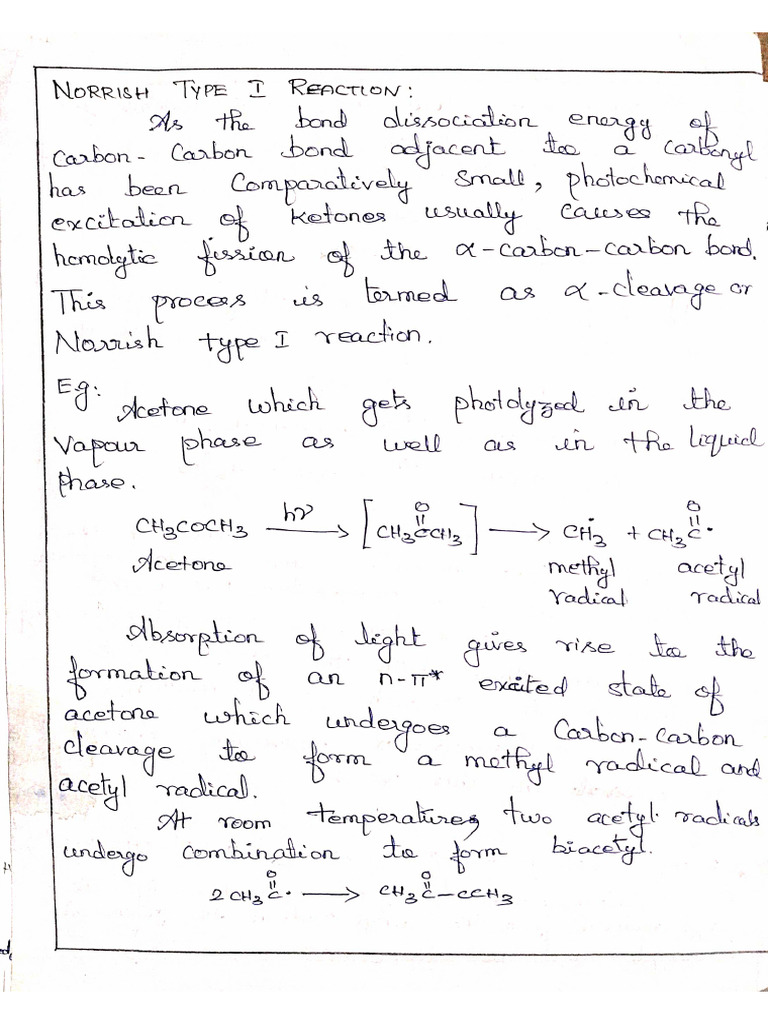 NORRISH TYPE I REACTION:
As the bond dissociation energy of
Carbon - Carbon bond adjacent to a carbonyl
has been Comparatively small, photochemical
excitation of ketones usually causes the
homolytic fission of the α-carbon-carbon bond.
This process is termed as α-cleavage or
Norrish type I reaction.
Eg:
Acetone which gets photolyzed in the
vapour phase as well as in the liquid
phase.
O O
CH3COCH3 hν → [CH3CCH3] → CH3• + CH3C•
Acetone methyl acetyl
radical radical
Absorption of light gives rise to the
formation of an n-π* excited state of
acetone which undergoes a Carbon-carbon
cleavage to form a methyl radical and
acetyl radical.
At room temperatures, two acetyl radicals
undergo combination to form biacetyl.
O O
2CH3C• → CH3C-CCH3